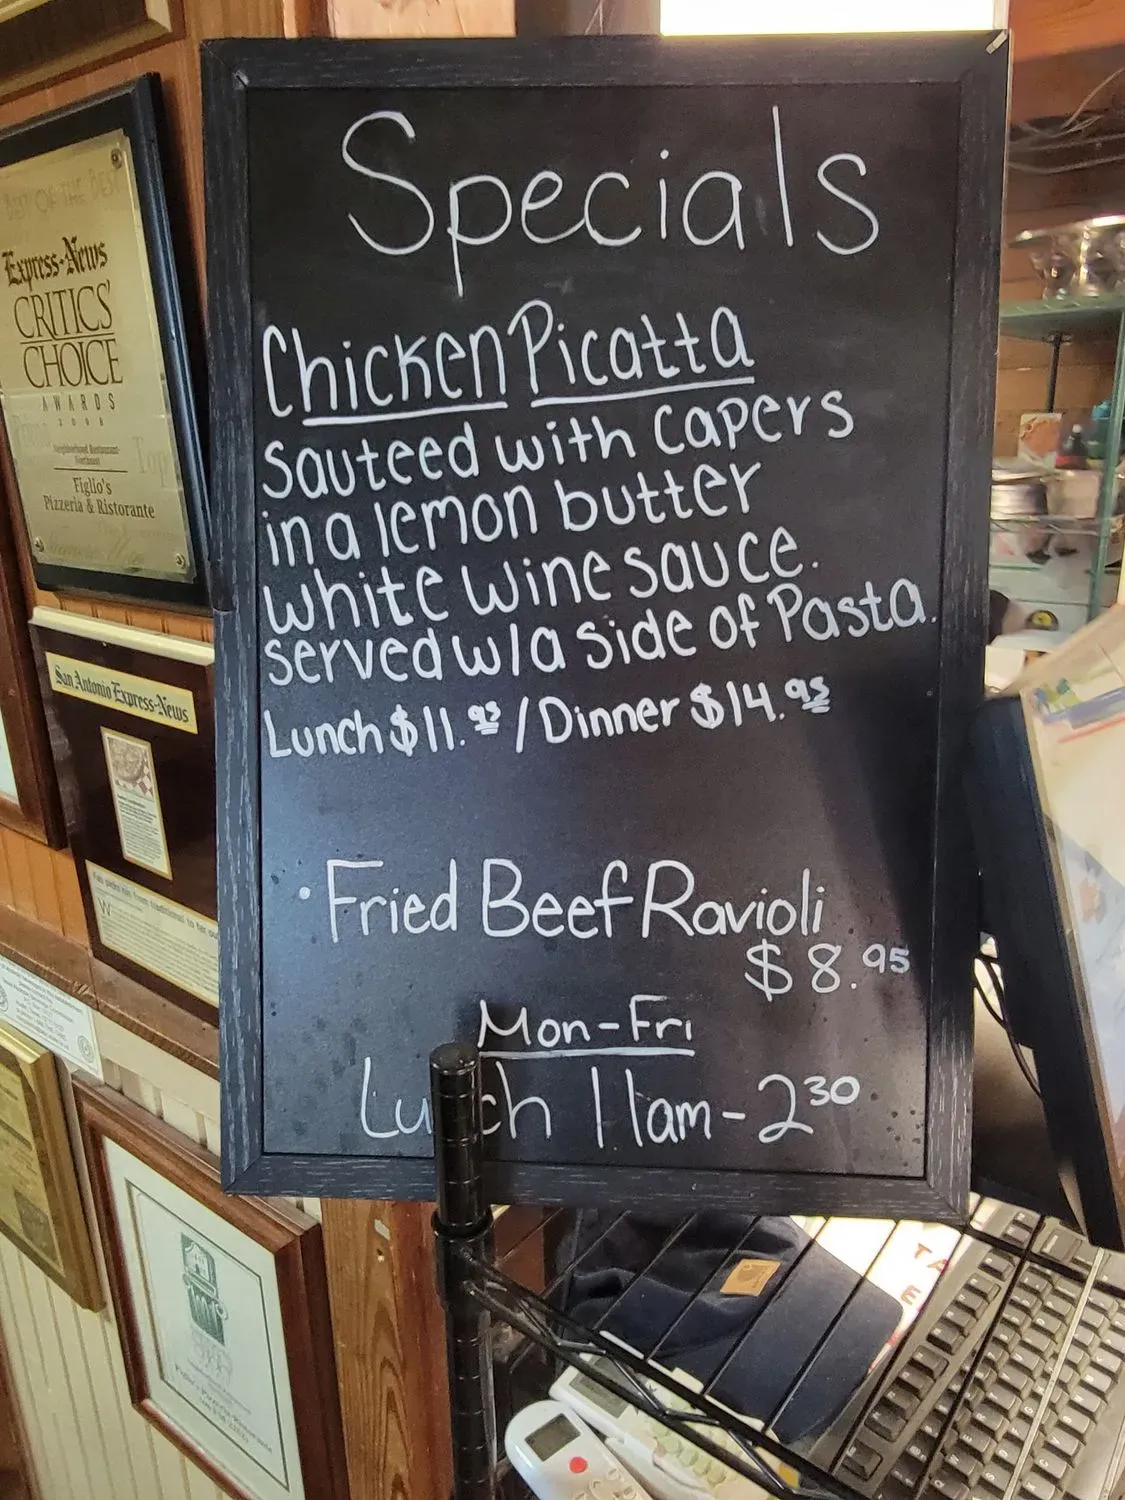 Specials
Chicken Picatta
Sauteed with Capers
in a lemon butter
white wine sauce.
served w/a side of Pasta.
Lunch $11.95 / Dinner $14.95
· Fried Beef Ravioli
$8.95
Mon-Fri
Lunch 11am-2 30
BEST OF THE BEST
Express-News
CRITICS'
CHOICE
AWARDS
2008
Neighborhood Restaurant
Northwest
Figlio's
Pizzeria & Ristorante
San Antonio Express-News
TA
E